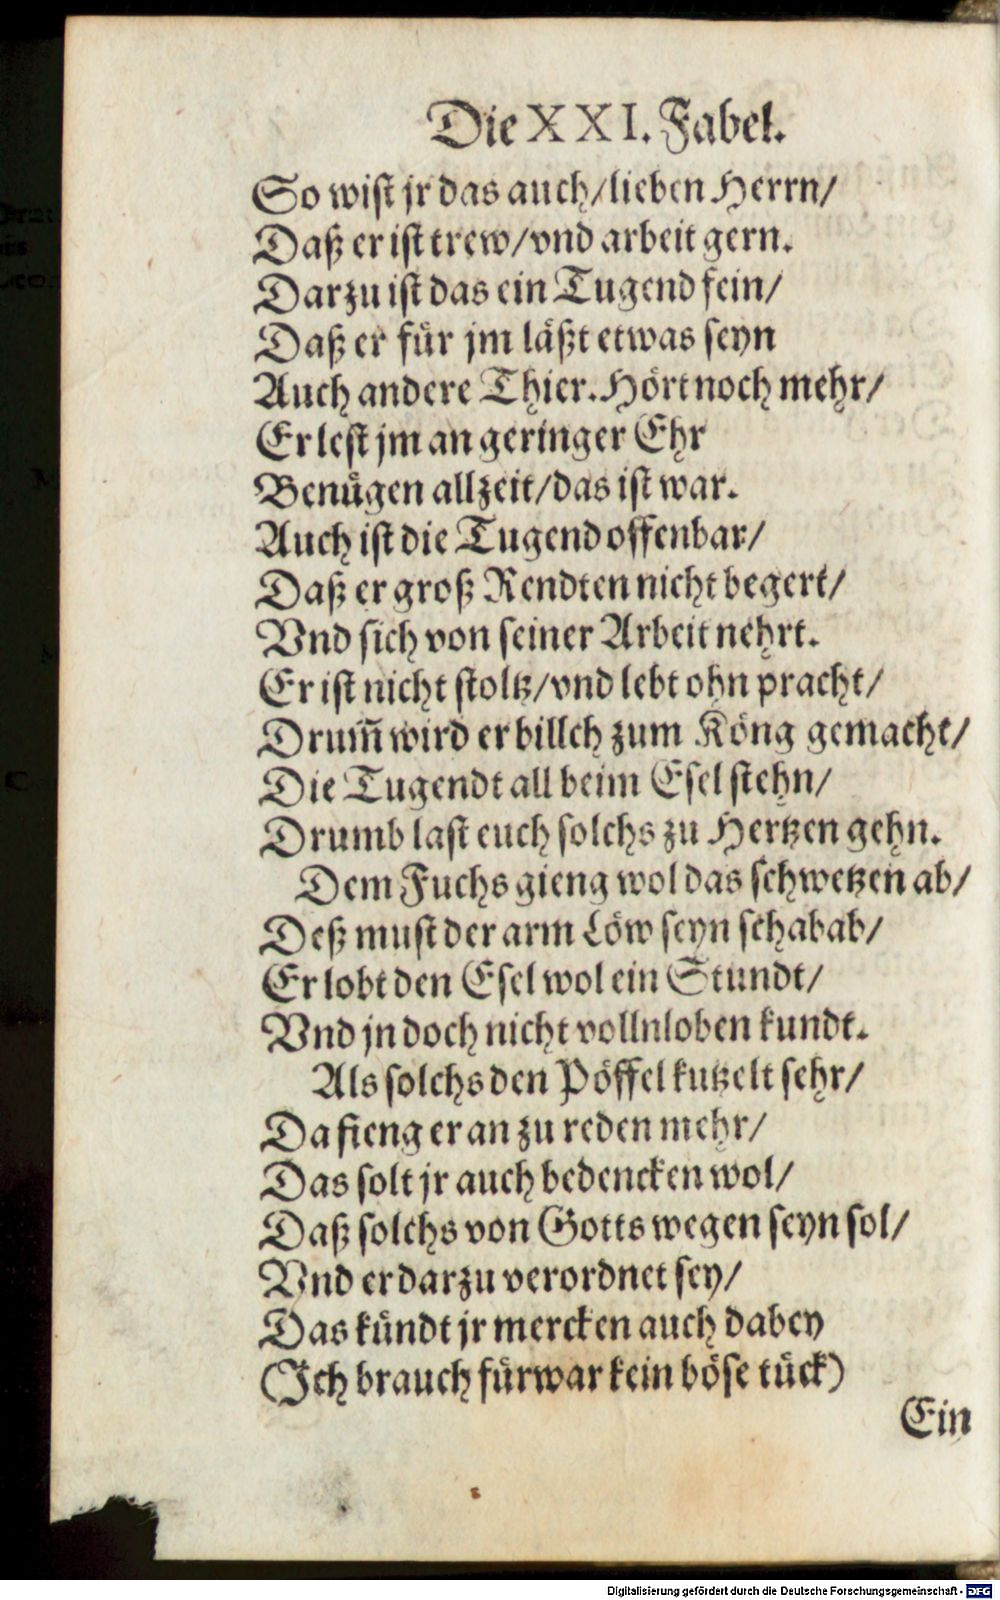 Die XXI. Fabel.
So wist jr das auch/lieben Herrn/
Daß er ist trew/vnd arbeit gern.
Darzu ist das ein Tugend fein/
Daß er für jm läßt etwas seyn
Auch andere Thier. Hört noch mehr/
Er lest jm an geringer Ehr
Benügen allzeit/das ist war.
Auch ist die Tugend offenbar/
Daß er groß Rendten nicht begert/
Vnd sich von seiner Arbeit nehrt.
Er ist nicht stoltz/vnd lebt ohn pracht/
Drum̃ wird er billch zum Köng gemacht/
Die Tugendt all beim Esel stehn/
Drumb last euch solchs zu Hertzen gehn.
Dem Fuchs gieng wol das schwetzen ab/
Deß must der arm Löw seyn schabab/
Er lobt den Esel wol ein Stundt/
Vnd jn doch nicht vollnloben kundt.
Als solchs den Pöffel kutzelt sehr/
Da fieng er an zu reden mehr/
Das solt jr auch bedencken wol/
Daß solchs von Gotts wegen seyn sol/
Vnd er darzu verordnet sey/
Das kündt jr mercken auch dabey
(Ich brauch fürwar kein böse tück)
Ein
Digitalisierung gefördert durch die Deutsche Forschungsgemeinschaft - DFG